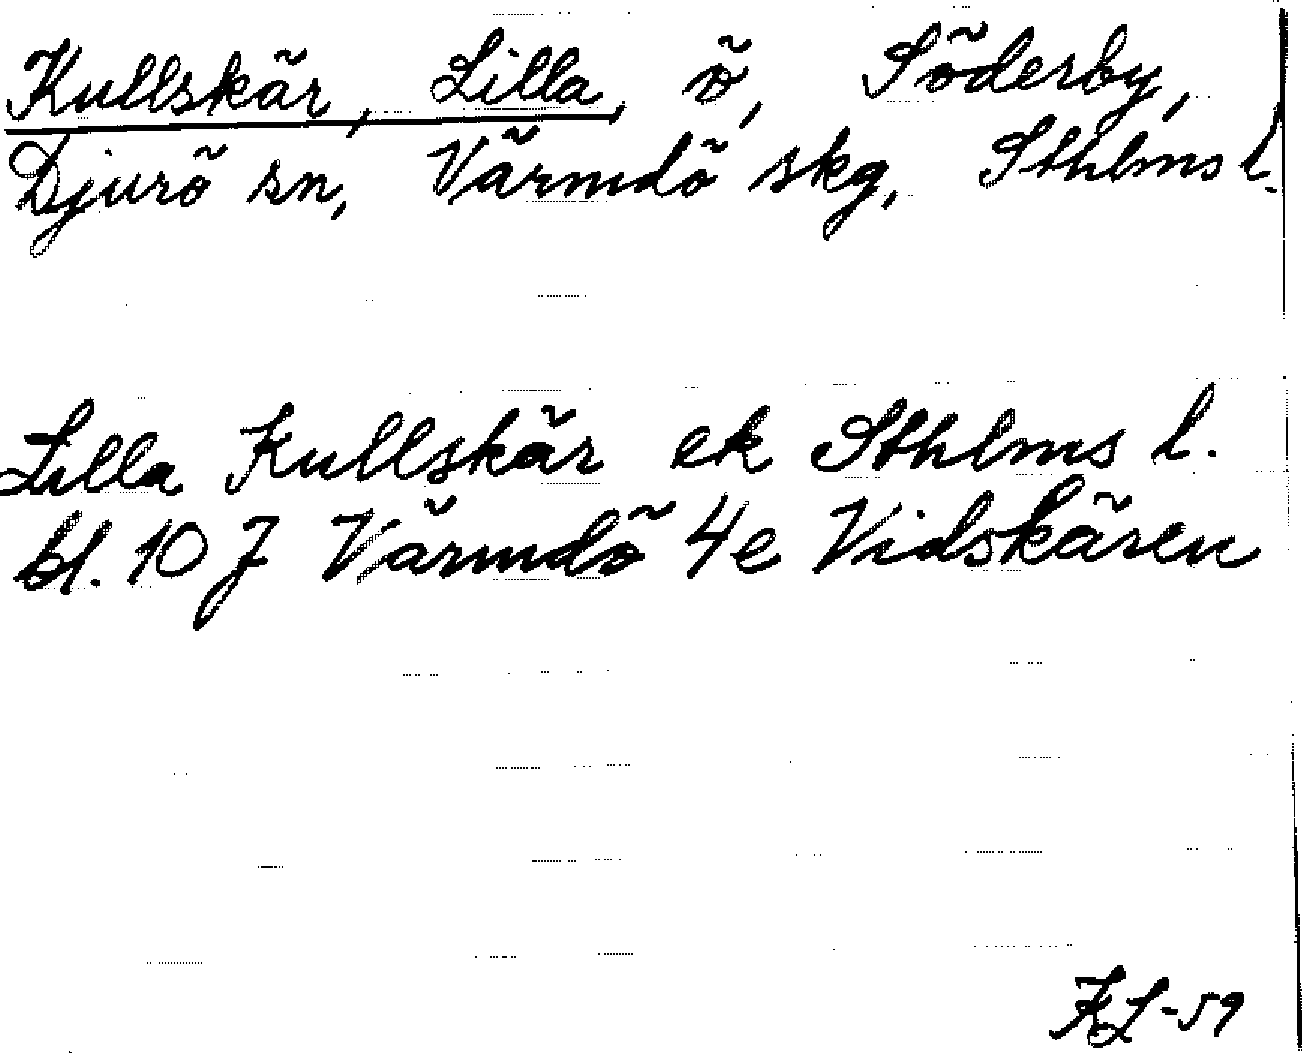 Kullskär, Lilla, ö, Söderby,
Djurö sn, Värmdö skg, Sthlms l.
Lilla Kullskär ek Sthlms l.
bl. 10 J Värmdö 4e Vidskären
KL-59